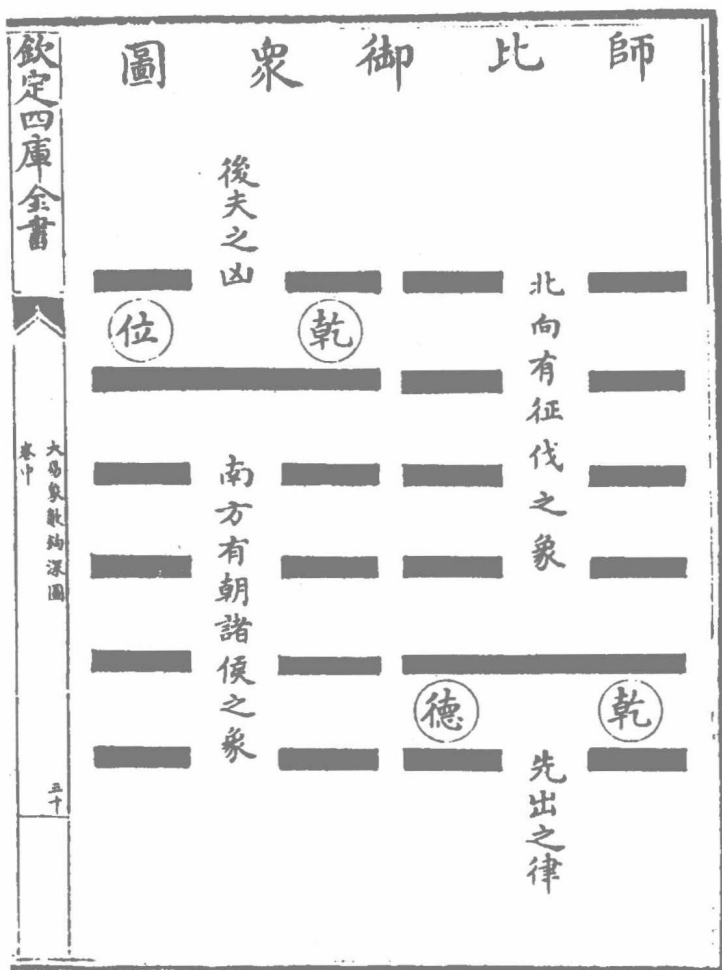 師比御衆圖
北向有征伐之象
乾
德
先出之律
後夫之凶
乾
位
南方有朝諸侯之象
欽定四庫全書
大易象數鉤深圖
卷中
五十